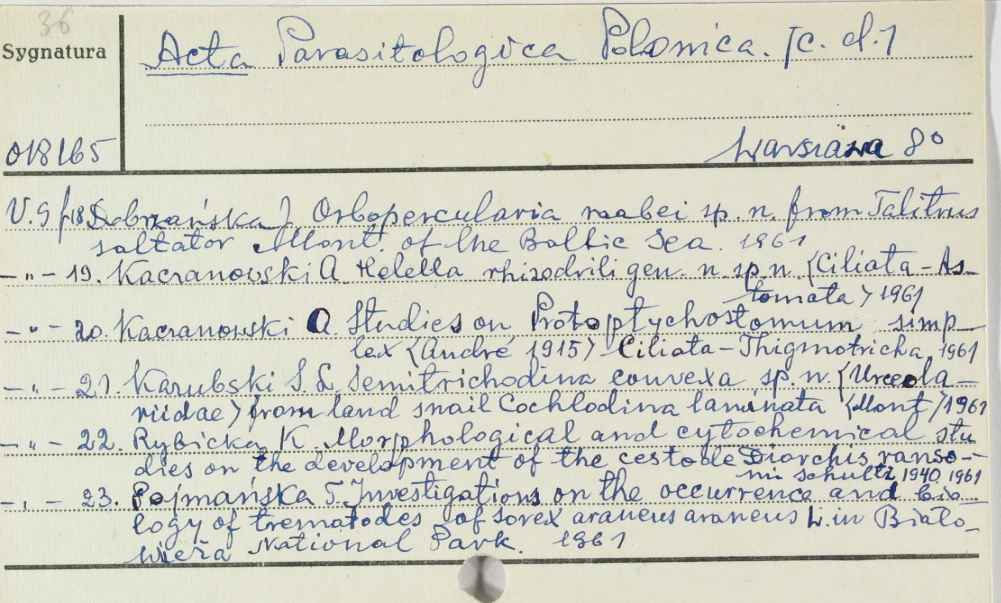 36
Sygnatura
Acta Parasitologica Polonica. [c. d.]
018165
Warszawa 8°
V. 9 f. 18. Dobrzańska J. Orbopercularia raabei sp. n. from Talitrus
saltator Mont. of the Baltic Sea. 1961
— „ — 19. Kaczanowski A. Helella rhizodrili gen. n sp. n. (Ciliata - As-
tomata) 1961
— „ — 20. Kaczanowski A. Studies on Protoptychostomum simp-
lex (André 1915) Ciliata - Thigmotricha 1961
— „ — 21. Kazubski S. L. Semitrichodina convexa sp. n. (Urceola-
riidae) from land snail Cochlodina laminata (Mont) 1961
— „ — 22. Rybicka K. Morphological and cytochemical stu
dies on the development of the cestode Diorchis ranso-
mi schultz 1940 1961
— „ — 23. Pojmańska T. Investigations on the occurrence and bio-
logy of trematodes of Sorex araneus araneus L. in Biało-
wieża National Park. 1961